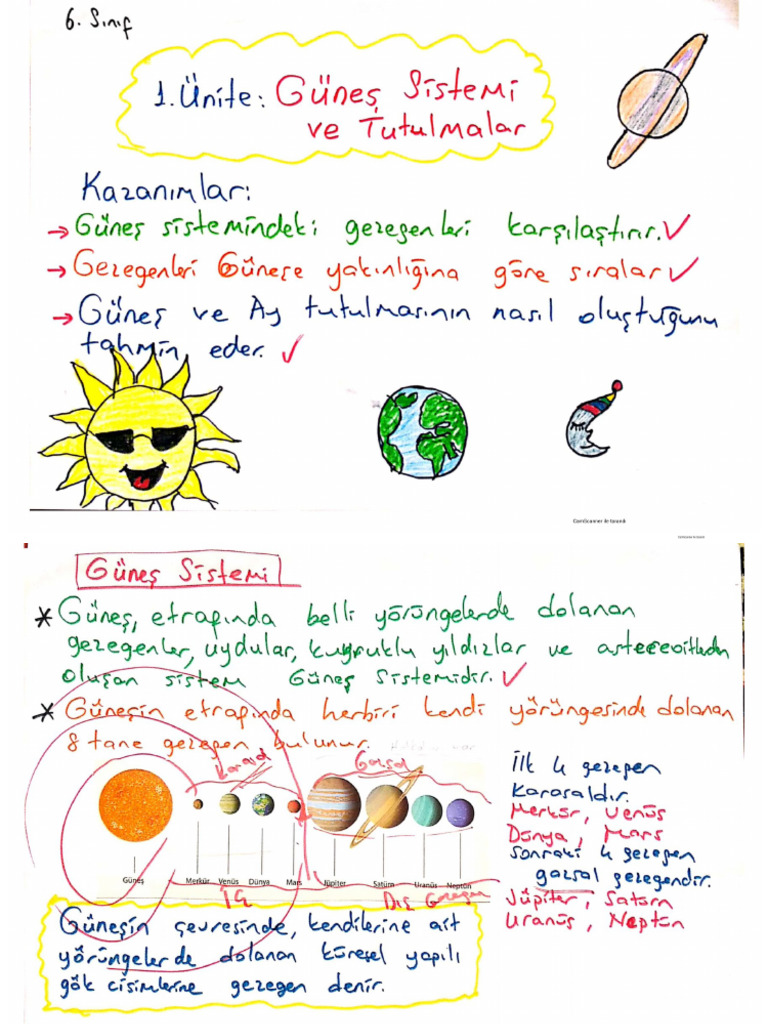 6. Sınıf
1. Ünite: Güneş Sistemi
ve Tutulmalar
Kazanımlar:
→ Güneş sistemindeki gezegenleri karşılaştırır. ✓
→ Gezegenleri Güneşe yakınlığına göre sıralar ✓
→ Güneş ve Ay tutulmasının nasıl oluştuğunu
tahmin eder. ✓
CamScanner ile tarandı
CamScanner ile tarandı
Güneş Sistemi
* Güneş, etrafında belli yörüngelerde dolanan
gezegenler, uydular, kuyruklu yıldızlar ve
oluşan sistem Güneş Sistemidir. ✓
* Güneşin etrafında herbiri kendi yörüngesinde dolanan
8 tane gezegen bulunur.
Karasal
Gazsal
Güneş
Merkür Venüs Dünya Mars Jüpiter Satürn Uranüs Neptün
İç
Dış Gezegen
İlk 4 gezegen
Karasaldır.
Merkür, Venüs
Dünya, Mars
Sonraki 4 gezegen
gazsal gezegendir.
Jüpiter, Satürn
Uranüs, Neptün
Güneşin çevresinde, kendilerine ait
yörüngelerde dolanan küresel yapılı
gök cisimlerine gezegen denir.